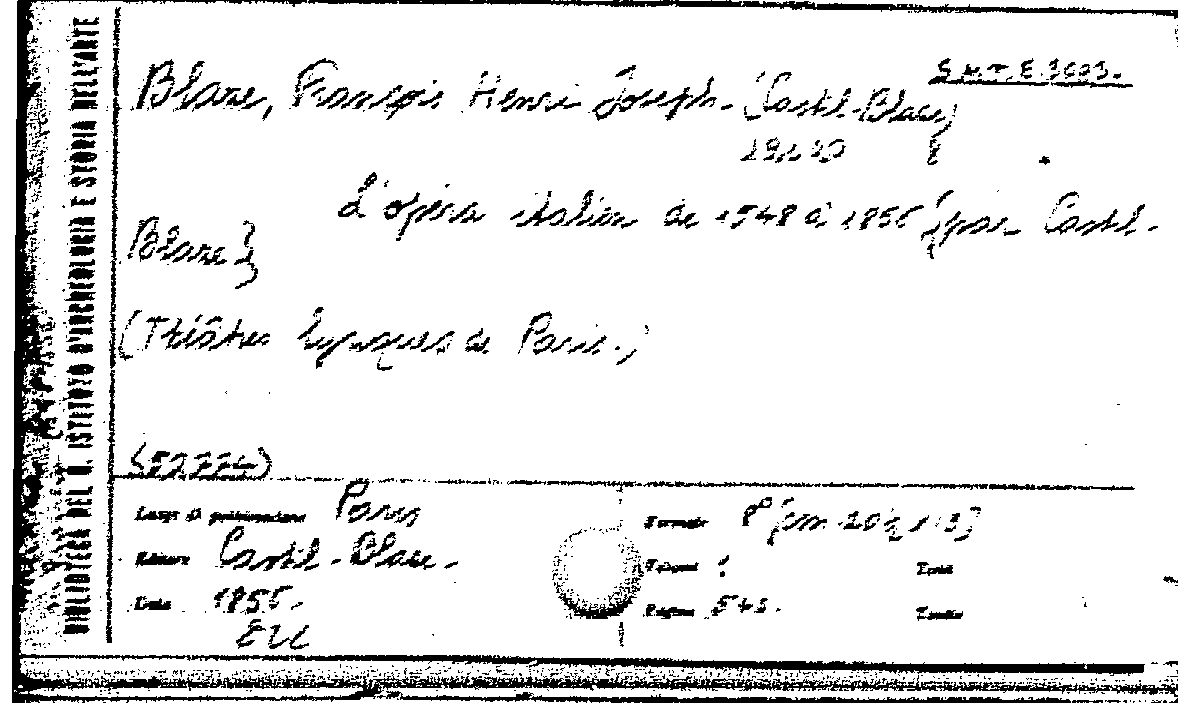 BIBLIOTECA DEL R. ISTITUTO D'ARCHEOLOGIA E STORIA DELL'ARTE
Blaze, François Henri Joseph - (Castil-Blaze)
8
L'opéra italien de 1548 à 1856 [par Castil-
Blaze]
(Théâtres lyriques de Paris.)
Luogo di pubblicazione Paris
Formato 8°
Editore Castil-Blaze.
Volumi 1
Tomi
Data 1856.
Pagine 543.
Tavole